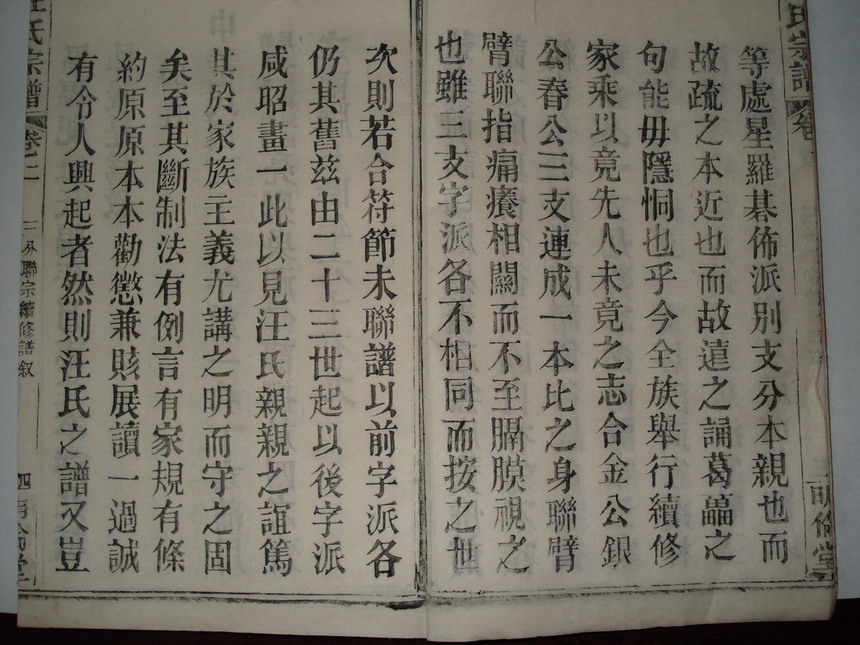 氏宗譜
等處星羅碁佈派别支分本親也而
故疏之本近也而故遠之誦葛藟之
句能毋隱恫也乎今全族舉行續修
家乘以竟先人未竟之志合金公銀
公春公三支連成一本比之身聯臂
臂聯指痛癢相關而不至膈膜視之
也雖三支字派各不相同而按之世
次則若合符節未聯譜以前字派各
仍其舊茲由二十三世起以後字派
咸昭畫一此以見汪氏親親之誼篤
其於家族主義尤講之明而守之固
矣至其斷制法有例言有家規有條
約原原本本勸懲兼賅展讀一過誠
有令人興起者然則汪氏之譜又豈
汪氏宗譜
三分聯宗續修譜叙
四